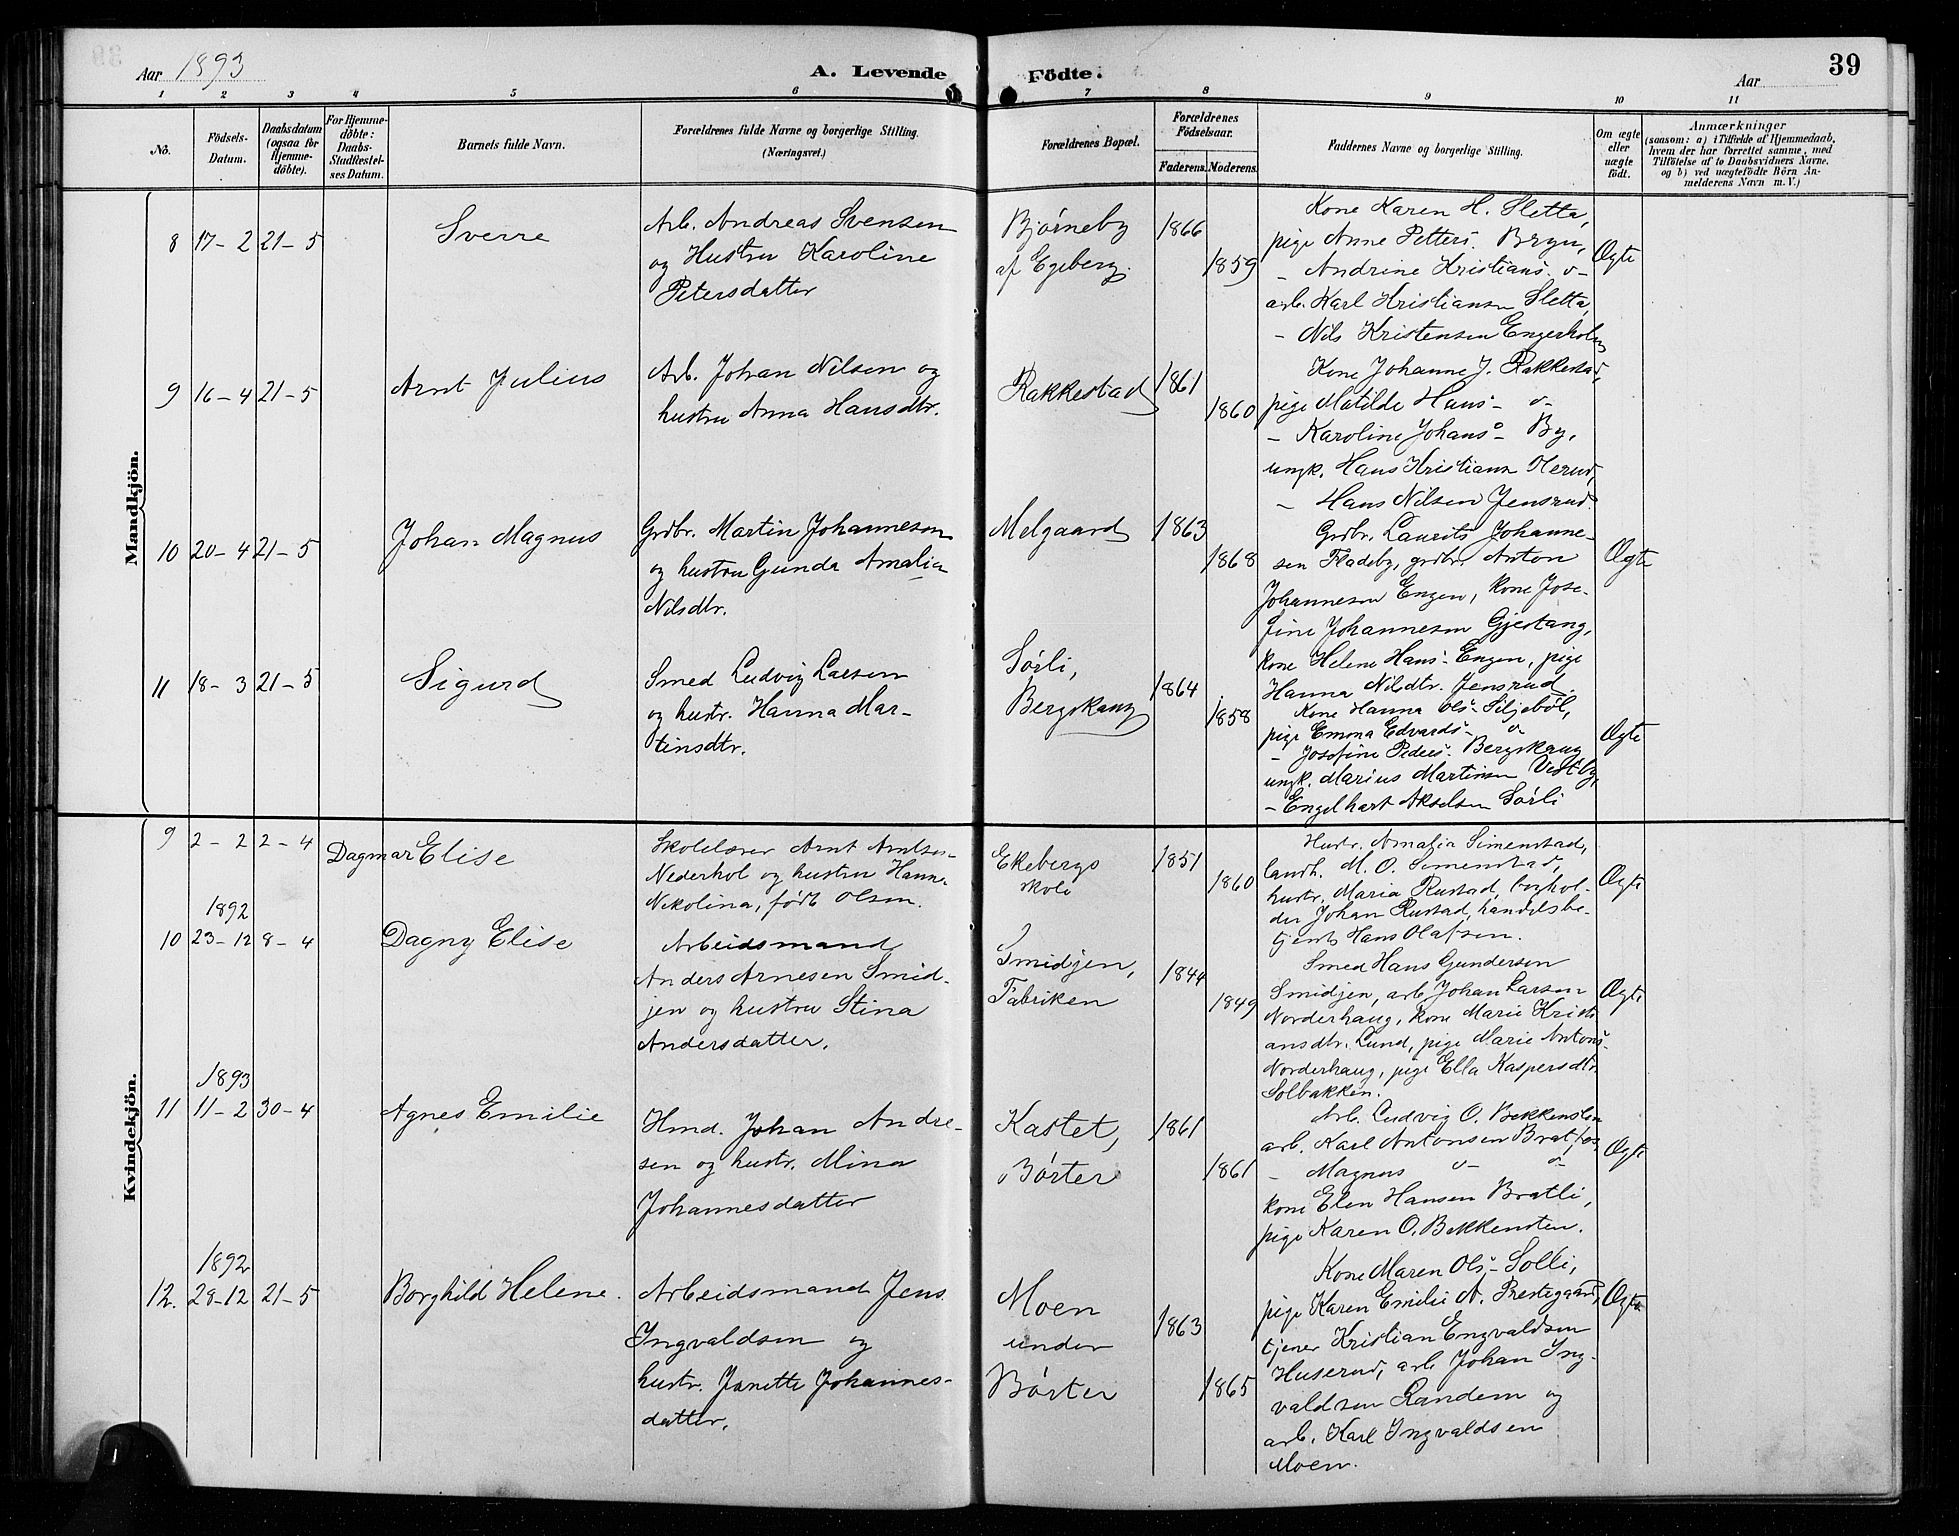 Aar 1893
A. Levende Födte.
Aar
39
1 2 3 4 5 6 7 8 9 10 11
No.
Födsels-
Datum.
Daabsdatum
(ogsaa for
Hjemme-
döbte).
For Hjemme-
döbte:
Daabs-
Stadfæstel-
ses Datum.
Barnets fulde Navn.
Forældrenes fulde Navne og borgerlige Stilling.
(Næringsvei.)
Forældrenes Bopæl.
Forældrenes
Födselsaar.
Faderens. Moderens.
Faddernes Navne og borgerlige Stilling.
Om ægte
eller
uægte
födt.
Anmærkninger
(saasom: a) i Tilfælde af Hjemmedaab,
hvem der har forrettet samme, med
Tilföielse af to Daabsvidners Navne.
og b) ved uægtefödte Börn An-
melderens Navn m. V.)
Mandkjön.
8 17-2 21-5
Sverre
Arb. Andreas Svensen
og Hustru Karoline
Petersdatter
Bjørneby
af Egeberg.
1866
1859
Kone Karen H. Sletta,
pige Anne Petters. Bryn,
- Andrine Kristians. o-
arb. Karl Kristiansen Sletta,
- Nils Kristensen Engerholm
Ægte
9 16-4 21-5
Arnt Julius
Arb. Johan Nilsen og
hustru Anna Hansdtr.
Rakkestad
1861
1860
Kone Johanne J. Rakkestad,
pige Matilde Hans- o-
- Karoline Johans- By,
ungk. Hans Kristiansn Olerud,
- Hans Nilsen Jensrud.
10 20-4 21-5
Johan Magnus
Grdbr. Martin Johannesen
og hustru Gunda Amalia
Nilsdtr.
Melgaard
1863
1868
Grdbr. Laurits Johanne-
sen Fladeby, grdbr. Anton
Johannesen Engen, kone Jose-
fine Johannesen Gjestang,
kone Helene Hans- Engen, pige
Hanna Nilsdtr. Jensrud.
Ægte
11 18-3 21-5
Sigurd
Smed Ludvig Larsen
og hustr. Hanna Mar-
tinsdtr.
Sørli,
Bergskaug
1864
1858
Kone Hanna Ols- Siljebøl,
pige Emma Edvards- o-
- Josefine Peders- Bergskaug
ungk. Marius Martinsen Vestby,
- Engelhart Akselsen Sørli
Ægte
Kvindekjön.
9 2-2 2-4
Dagmar Elise
Skolelærer Arnt Arntsen
Nederhol og hustru Hanna
Nikolina, født Olsen.
Ekebergs
skole
1851
1860
Hustr. Amalia Simenstad,
landh. M. O. Simenstad,
hustr. Maria Rustad, boghol-
der Johan Rustad, handelsbe-
tjent Hans Olafsen.
Ægte
1892
10 23-12 8-4
Dagny Elise
Arbeidsmand
Anders Arnesen Smid-
jen og hustru Stina
Andersdatter.
Smidjen,
Fabriken
1844
1849
Smed Hans Gundersen
Smidjen, arb. Johan Larsen
Norderhaug, kone Marie Kristi-
ansdtr. Lund, pige Marie Antons-
Norderhaug, pige Ella Kaspersdtr.
Solbakken.
Ægte
1893
11 11-2 30-4
Agnes Emilie
Hmd. Johan Andre-
sen og hustr. Mina
Johannesdatter
Kastet,
Børter
1861
1861
Arb. Ludvig O. Bekkensten
arb. Karl Antonsen Bratfos,
- Magnus o- o-
kone Elen Hansen Bratli,
pige Karen O. Bekkensten.
Ægte
1892
12. 28-12 21-5
Borghild Helene.
Arbeidsmand Jens
Ingvaldsen og
hustr. Janette Johannes-
datter.
Moen
under
Børter
1863
1865
Kone Maren Ols- Solli,
pige Karen Emilie A. Prestegaard,
tjener Kristian Engvaldsen
Huserud, arb. Johan Ing-
valdsen Randem og
arb. Karl Ingvaldsen
Moen.
Ægte